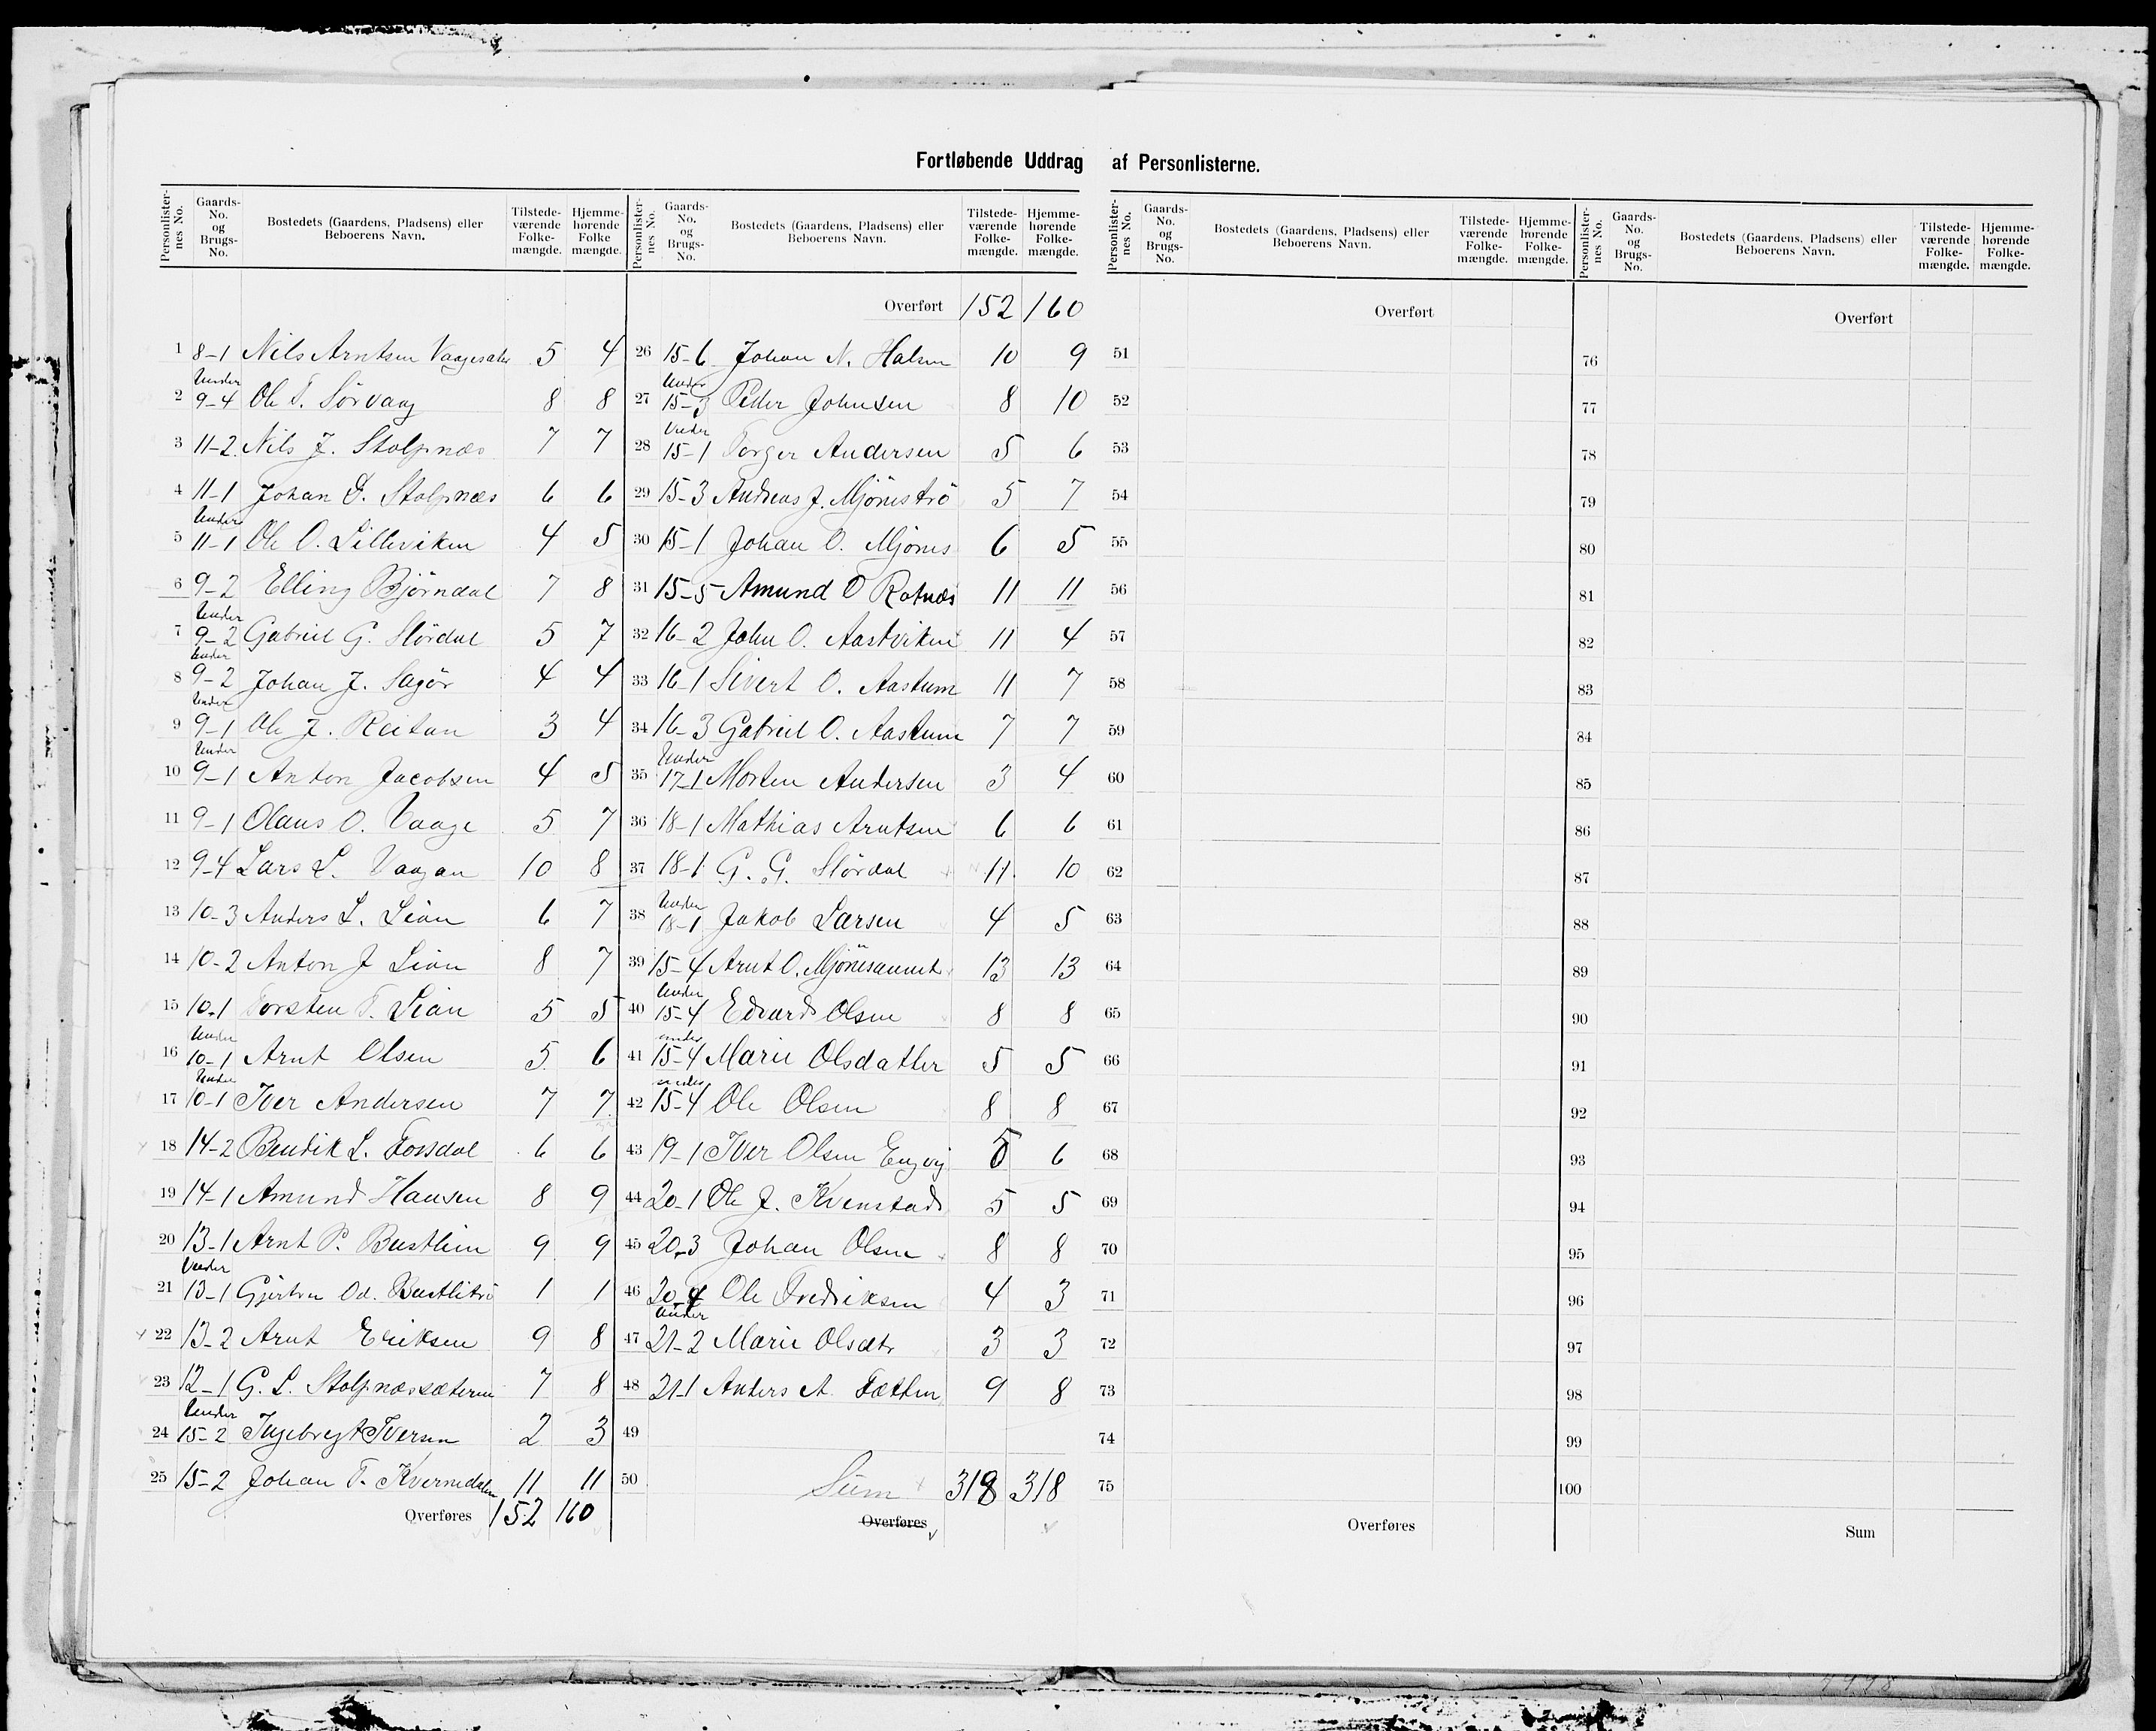 Fortløbende Uddrag af Personlisterne.
Personlister-nes No. Gaards-No. og Brugs-No. Bostedets (Gaardens, Pladsens) eller Beboerens Navn. Tilstede-værende Folke-mængde. Hjemme-hørende Folke mængde.
1 8-1 Nils Arntsen 5 4
2 Under 9-4 Ole T. Sörvaag 8 8
3 11-2 Nils J. Stolpnæs 7 7
4 11-1 Johan Stolpnæs 6 6
5 Under 11-1 Ole O. Lilleviken 4 5
6 9-2 Elling Bjørndal 7 8
7 Under 9-2 Gabriel G. Stördal 5 7
8 Under 9-2 Johan J. Sagör 4 4
9 Under 9-1 Ole J. Reitan 3 4
10 Under 9-1 Anton Jacobsen 4 5
11 9-1 Olaus O. Vaage 5 7
12 9-4 Lars L. Vaagan 10 8
13 10-3 Anders L. Lian 6 7
14 10-2 Anton J Lian 8 7
15 10-1 Torsten T. Lian 5 5
16 Under 10-1 Arnt Olsen 5 6
17 Under 10-1 Iver Andersen 7 7
18 14-2 Bendik L. Fossdal 6 6
19 14-1 Amund Hansen 8 9
20 13-1 Arnt P. Bustlien 9 9
21 Under 13-1 1 1
22 13-2 Arnt Eriksen 9 8
23 12-1 G. L. Stolpnæssæteren 7 8
24 Under 15-2 Ingebregt Iversen 2 3
25 15-2 Johan T. Kvernedalen 11 11
Overføres 152 160
Personlister-nes No. Gaards-No. og Brugs-No. Bostedets (Gaardens, Pladsens) eller Beboerens Navn. Tilstede-værende Folke-mængde. Hjemme-hørende Folke-mængde.
Overført 152 160
26 15-6 Johan N. Halsen 10 9
27 Under 15-3 Peder Johnsen 8 10
28 Under 15-1 Torger Andersen 5 6
29 15-3 Andreas J. Mjönströ 5 7
30 15-1 Johan O. Mjönes 6 5
31 15-5 Amund O Rotnæs 11 11
32 16-2 John O. Aastviken 11 4
33 16-1 Sivert O. Aastum 11 7
34 16-3 Gabriel O. Aastum 7 7
35 Under 17-1 Morten Andersen 3 4
36 18-1 Mathias Arntsen 6 6
37 18-1 G. G. Stördal 11 10
38 Under 18-1 Jakob Larsen 4 5
39 15-4 Arnt O. 13 13
40 Under 15-4 Edvard Olsen 8 8
41 under 15-4 Marie Olsdatter 5 5
42 under 15-4 Ole Olsen 8 8
43 19-1 Iver Olsen Engvig 5 6
44 20-1 Ole J. Kvenstad 5 5
45 20-3 Johan Olsen 8 8
46 20-4 Ole Fredriksen 4 3
47 Under 21-2 Marie Olsdtr 3 3
48 21-1 Anders A. Sætten 9 8
49
50 Sum 318 318
Overføres
Personlister-nes No. Gaards-No. og Brugs-No. Bostedets (Gaardens, Pladsens) eller Beboerens Navn. Tilstede-værende Folke-mængde. Hjemme-hørende Folke-mængde.
Overført
51
52
53
54
55
56
57
58
59
60
61
62
63
64
65
66
67
68
69
70
71
72
73
74
75
Overføres
Personlister-nes No. Gaards-No. og Brugs-No. Bostedets (Gaardens, Pladsens) eller Beboerens Navn. Tilstede-værende Folke-mængde. Hjemme-hørende Folke-mængde.
Overført
76
77
78
79
80
81
82
83
84
85
86
87
88
89
90
91
92
93
94
95
96
97
98
99
100
Sum